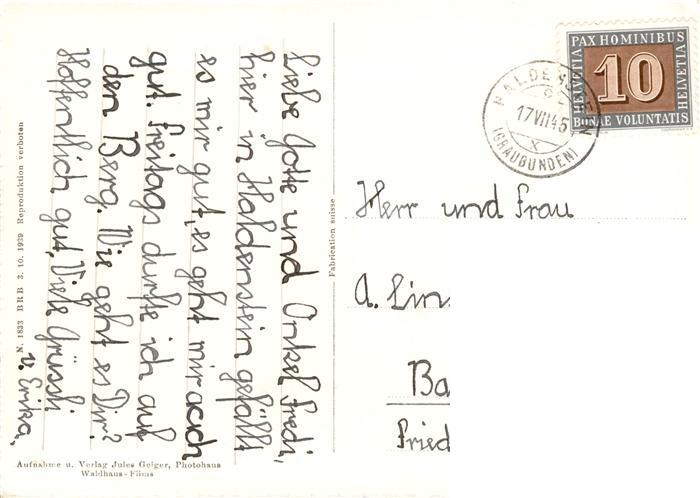 Liebe Gotte und Onkel Fredi,
hier in Haldenstein gefällt
es mir gut, es geht mir auch
gut. Freitags durfte ich auf
den Berg. Wie geht es Dir?
Hoffentlich gut, Viele Grüssli
v. Erika,
N. 1833 BRB 3. 10. 1939 Reproduktion verboten
Aufnahme u. Verlag Jules Geiger, Photohaus
Waldhaus-Flims
Fabrication suisse
PAX HOMINIBUS
HELVETIA
10
HELVETIA
BONAE VOLUNTATIS
17 VII 45
X
(GRAUBÜNDEN)
Herr und Frau
A. Lin
Ba
Fried